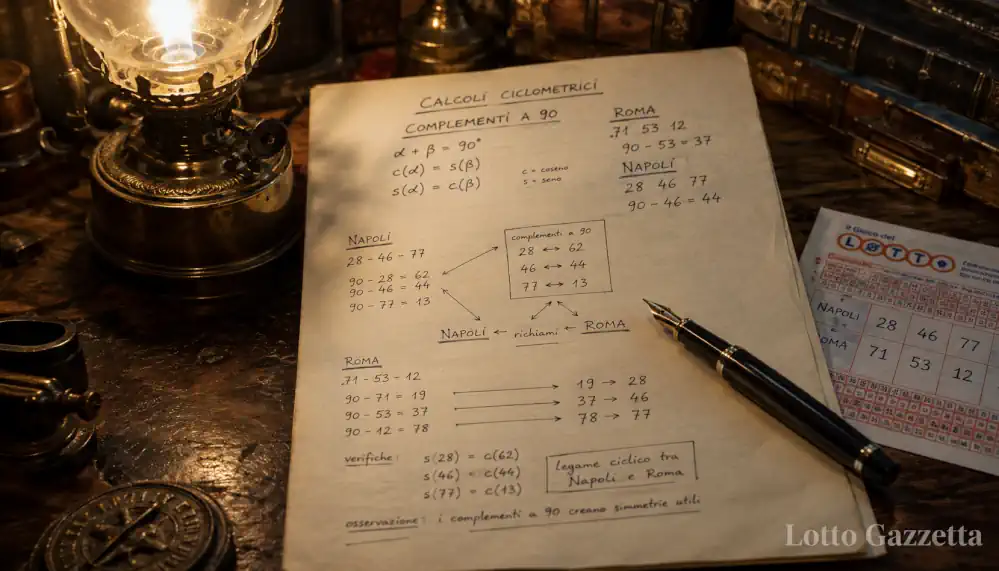 CALCOLI CICLOMETRICI
COMPLEMENTI A 90
α + β = 90°
c(α) = s(β)
s(α) = c(β)
c = coseno
s = seno
ROMA
.71 53 12
90 - 53 = 37
NAPOLI
28 46 77
90 - 46 = 44
NAPOLI
28 - 46 - 77
90 - 28 = 62
90 - 46 = 44
90 - 77 = 13
complementi a 90
28 ↔ 62
46 ↔ 44
77 ↔ 13
NAPOLI ← richiami ← ROMA
ROMA
.71 - 53 - 12
90 - 71 = 19
90 - 53 = 37
90 - 12 = 78
19 → 28
37 → 46
78 → 77
verifiche:
s(28) = c(62)
s(46) = c(44)
s(77) = c(13)
legame ciclico tra
Napoli e Roma
osservazione: i complementi a 90 creano simmetrie utili
Il Gioco del
LOTTO
NAPOLI
28 46 77
ROMA
71 53 12
Lotto Gazzetta